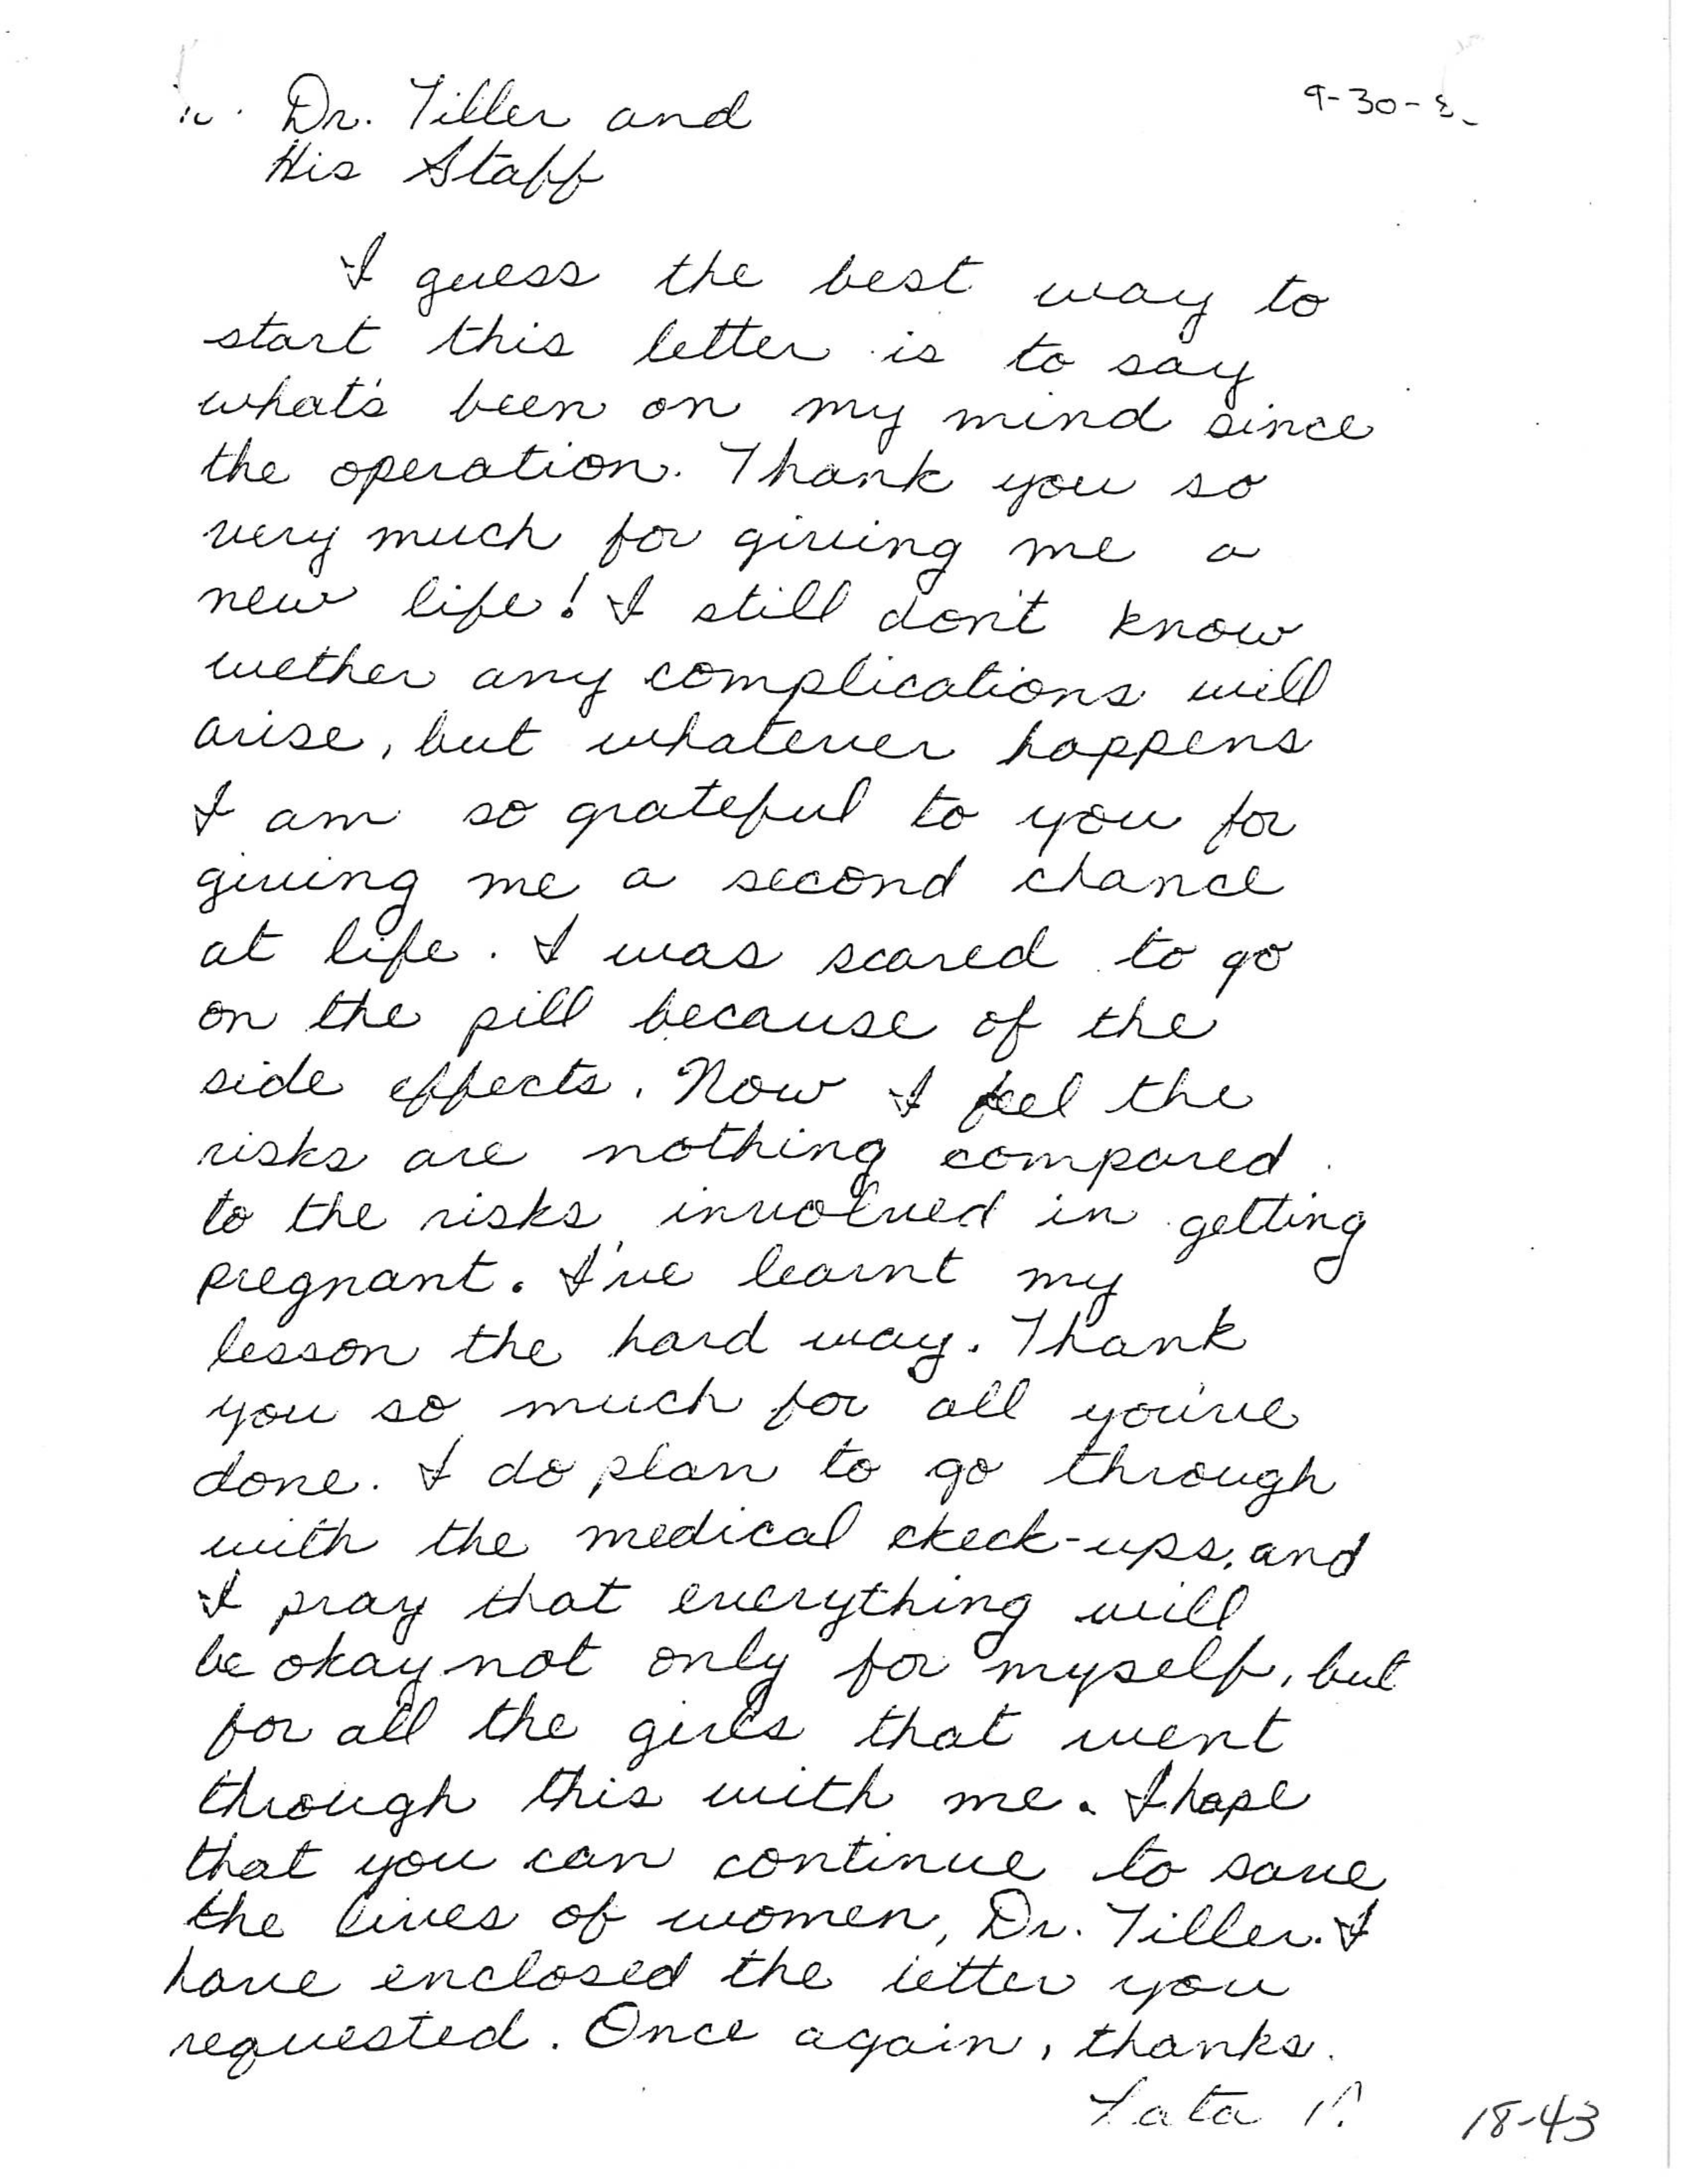 9-30-8
Dr. Tiller and
His Staff
I guess the best way to
start this letter is to say
what's been on my mind since
the operation. Thank you so
very much for giving me a
new life! I still don't know
wether any complications will
arise, but whatever happens
I am so grateful to you for
giving me a second chance
at life. I was scared to go
on the pill because of the
side effects. Now I feel the
risks are nothing compared
to the risks involved in getting
pregnant. I've learnt my
lesson the hard way. Thank
you so much for all you've
done. I do plan to go through
with the medical check-ups, and
I pray that everything will
be okay not only for myself, but
for all the girls that went
through this with me. I hope
that you can continue to save
the lives of women, Dr. Tiller. I
have enclosed the letter you
requested. Once again, thanks.
18-43